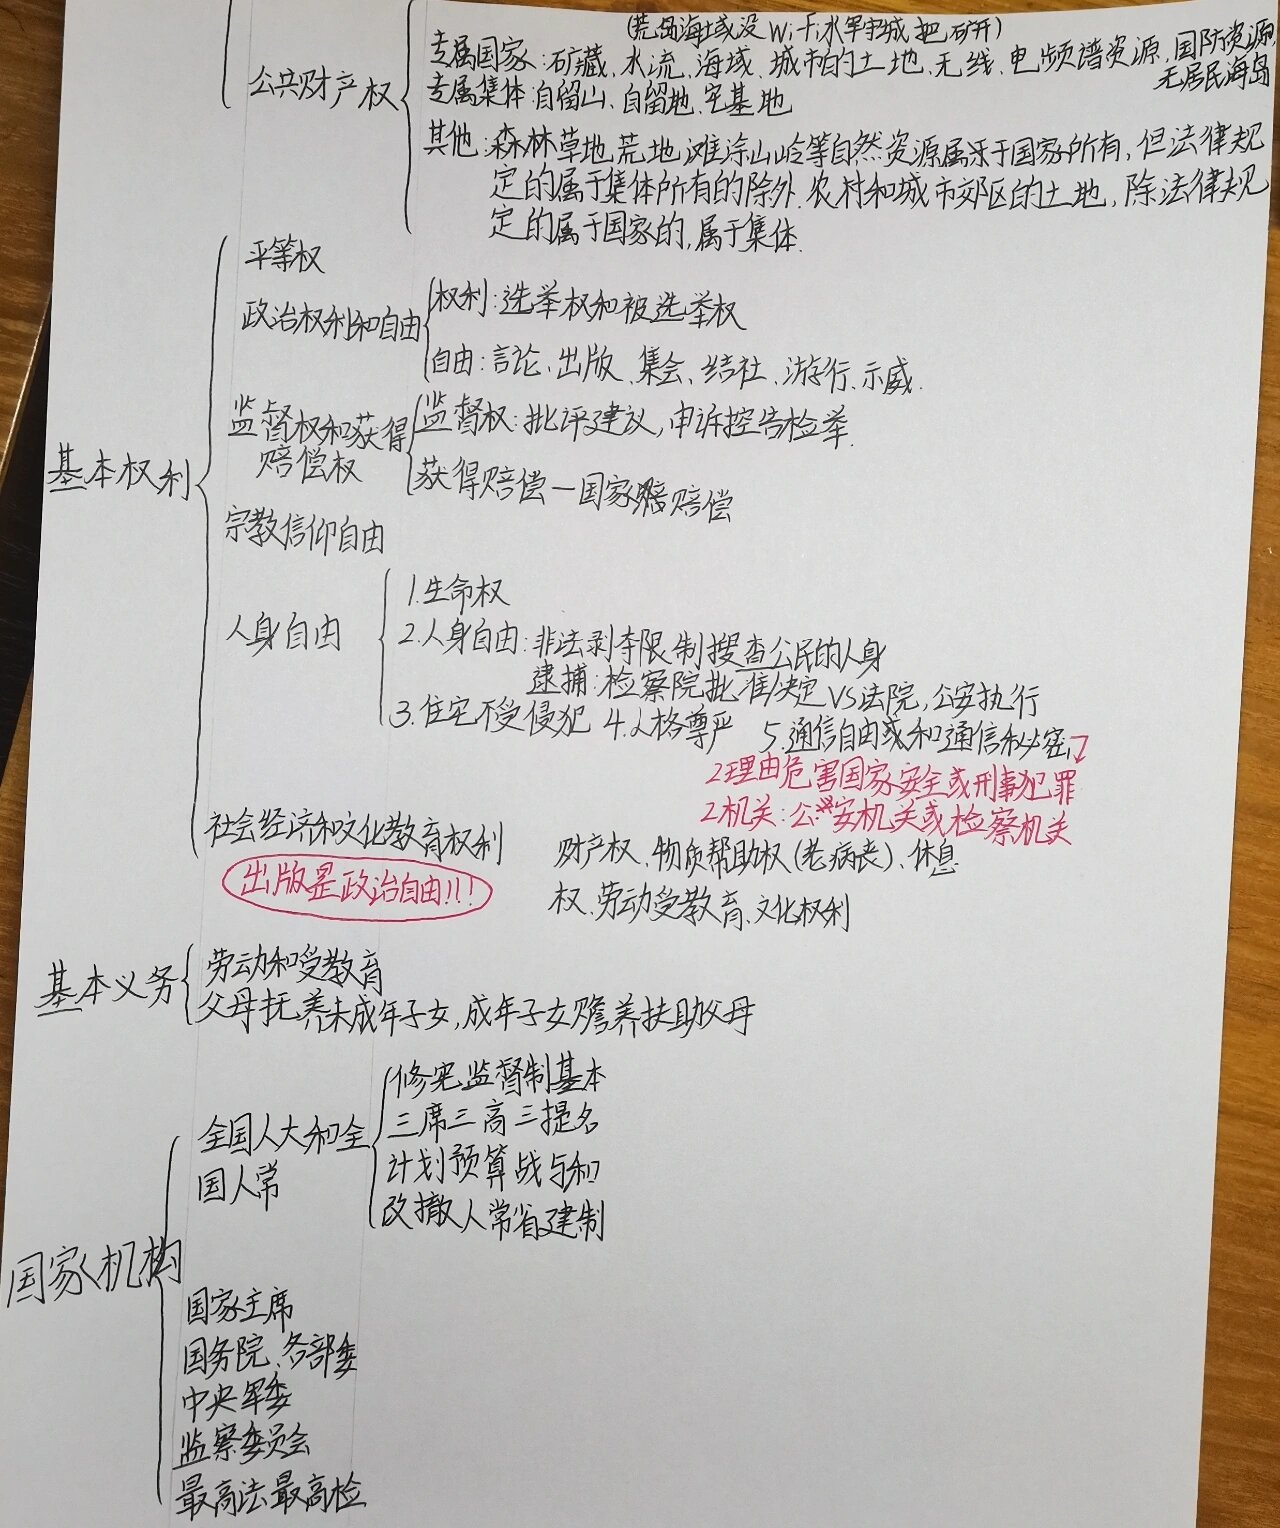 (荒岛海域没Wi-Fi水军守城把矿开)
公共财产权
专属国家:矿藏、水流、海域、城市的土地、无线、电频谱资源、国防资源,
无居民海岛
专属集体:自留山、自留地、宅基地
其他:森林草地荒地滩涂山岭等自然资源属于国家所有,但法律规
定的属于集体所有的除外.农村和城市郊区的土地,除法律规
定的属于国家的,属于集体.
基本权利
平等权
政治权利和自由
权利:选举权和被选举权
自由:言论、出版、集会、结社、游行、示威.
监督权和获得
赔偿权
监督权:批评建议,申诉控告检举.
获得赔偿—国家赔偿
宗教信仰自由
人身自由
1.生命权
2.人身自由:非法剥夺限制搜查公民的人身
逮捕:检察院批准/决定VS法院,公安执行
3.住宅不受侵犯 4.人格尊严 5.通信自由或和通信秘密
2理由危害国家安全或刑事犯罪
2机关:公安机关或检察机关
社会经济和文化教育权利
财产权、物质帮助权(老病丧)、休息
权、劳动受教育、文化权利
出版是政治自由!!!
基本义务
劳动和受教育
父母抚养未成年子女,成年子女赡养扶助父母
国家机构
全国人大和全
国人常
修宪监督制基本
三席三高三提名
计划预算战与和
改撤人常省建制
国家主席
国务院、各部委
中央军委
监察委员会
最高法最高检